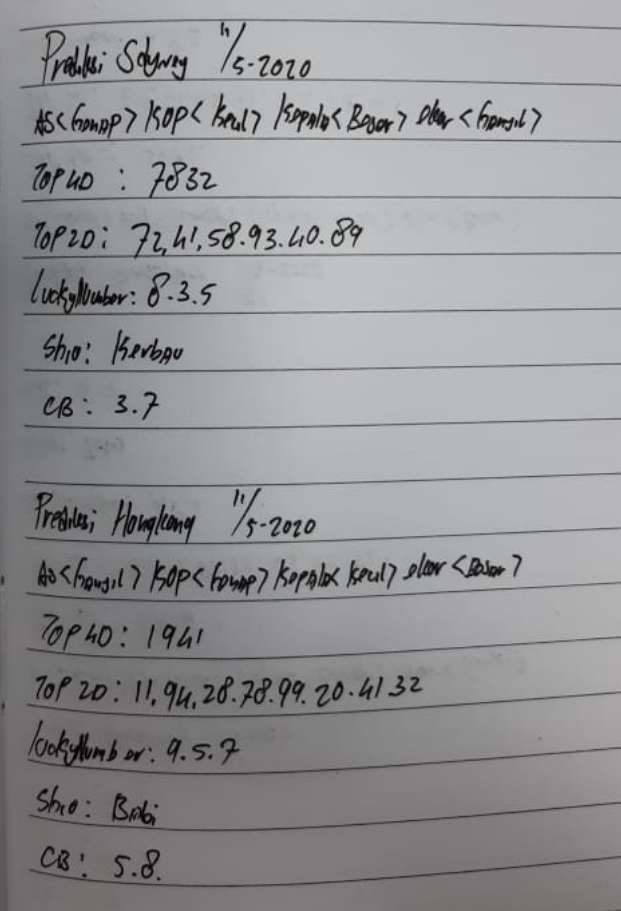 Prediksi Sdyney 11/5-2020
AS<GenAP> KOP<Kecil> KepAla<Besar> ekor<Ganjil>
TOP 4D : 7832
TOP 2D : 72,41,58.93.40.89
luckyNumber: 8.3.5
Shio: KerbAu
CB : 3.7
Prediksi Hongkong 11/5-2020
AS<Ganjil> KOP<GenAP> KepAla<Kecil> ekor<Besar>
TOP 4D : 1941
TOP 2D : 11,94,28.78.99.20.41 32
luckyNumber: 9.5.7
Shio: Babi
CB : 5.8.